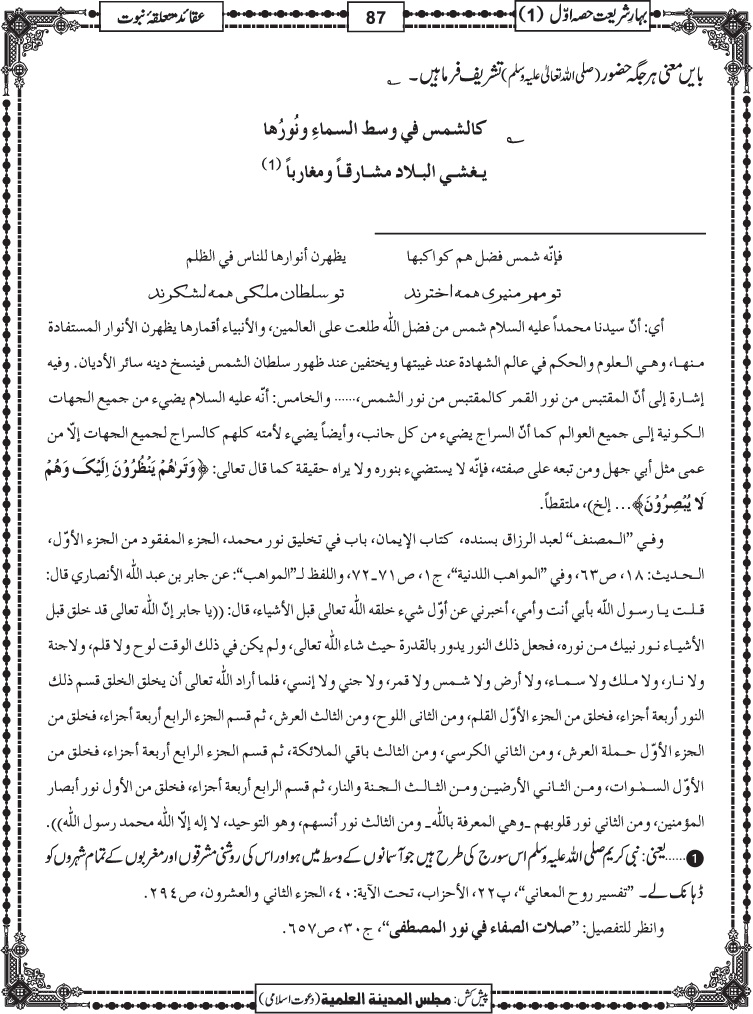 بہارِ شریعت حصہ اوّل (1)
87
عقائد متعلقۂ نبوت
بایں معنی ہر جگہ حضور (صلی اللہ تعالیٰ علیہ وسلم) تشریف فرما ہیں۔ ؎
؎ كالشمس في وسط السماءِ ونُورُها
يـغشـي البـلاد مشـارقـاً ومغارباً (1)
فإنّه شمس فضل هم كواكبها يظهرن أنوارها للناس في الظلم
تو مهر منيرى همه اخترند تو سلطان ملكى همه لشكرند
أي: أنّ سيدنا محمداً عليه السلام شمس من فضل الله طلعت على العالمين، والأنبياء أقمارها يظهرن الأنوار المستفادة
منـهـا، وهـي الـعلوم والحكم في عالم الشهادة عند غيبتها ويختفين عند ظهور سلطان الشمس فينسخ دينه سائر الأديان. وفيه
إشـارة إلى أنّ المقتبس من نور القمر كالمقتبس من نور الشمس،...... والخامس: أنّه عليه السلام يضيء من جميع الجهات
الـكـونية إلـى جميع العوالم كما أنّ السراج يضيء من كل جانب، وأيضاً يضيء لأمته كلهم كالسراج لجميع الجهات إلّا من
عمى مثل أبي جهل ومن تبعه على صفته، فإنّه لا يستضيء بنوره ولا يراه حقيقة كما قال تعالى: ﴿وَتَرٰىهُمْ يَنْظُرُوْنَ اِلَيْكَ وَهُمْ
لَا يُبْصِرُوْنَ﴾... إلخ)، ملتقطاً.
وفـي ”الـمصنف“ لعبد الرزاق بسنده، كتاب الإيمان، باب في تخليق نور محمد، الجزء المفقود من الجزء الأوّل،
الـحديث: ١٨، ص٦٣، وفي ”المواهب اللدنية“، ج١، ص٧١ـ٧٢، واللفظ لـ”المواهب“: عن جابر بن عبد الله الأنصاري قال:
قـلـت يـا رسـول اللّه بأبي أنت وأمي، أخبرني عن أوّل شيء خلقه الله تعالى قبل الأشياء، قال: ((يا جابر إنّ الله تعالى قد خلق قبل
الأشيـاء نـور نبيك مـن نوره، فجعل ذلك النور يدور بالقدرة حيث شاء الله تعالى، ولم يكن في ذلك الوقت لوح ولا قلم، ولاجنة
ولا نـار، ولا مـلك ولا سـمـاء، ولا أرض ولا شـمس ولا قمر، ولا جني ولا إنسي، فلما أراد الله تعالى أن يخلق الخلق قسم ذلك
النور أربعة أجزاء، فخلق من الجزء الأوّل القلم، ومن الثانى اللوح، ومن الثالث العرش، ثم قسم الجزء الرابع أربعة أجزاء، فخلق من
الجزء الأوّل حـملة العرش، ومن الثاني الكرسي، ومن الثالث باقي الملائكة، ثم قسم الجزء الرابع أربعة أجزاء، فخلق من
الأوّل السمٰوات، ومـن الثـانـي الأرضيـن ومـن الثـالـث الـجنة والنار، ثم قسم الرابع أربعة أجزاء، فخلق من الأول نور أبصار
المؤمنين، ومن الثاني نور قلوبهم ـ وهي المعرفة بالله ـ ومن الثالث نور أنسهم، وهو التوحيد، لا إله إلّا الله محمد رسول الله)).
1 ......یعنی: نبی کریم صلی اللہ علیہ وسلم اس سورج کی طرح ہیں جو آسمانوں کے وسط میں ہو اور اس کی روشنی مشرقوں اور مغربوں کے تمام شہروں کو
ڈھانک لے۔ ”تفسير روح المعاني“، پ٢٢، الأحزاب، تحت الآية: ٤٠، الجزء الثاني والعشرون، ص٢٩٤.
وانظر للتفصيل: ”صلات الصفاء في نور المصطفى“، ج٣٠، ص٦٥٧.
پیش کش: مجلس المدينة العلمية (دعوتِ اسلامی)